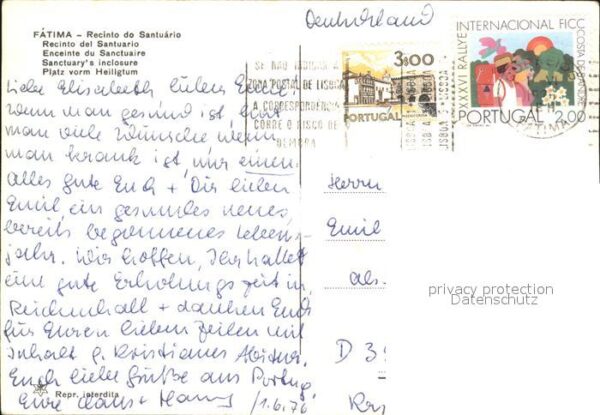 Deutschland
FÁTIMA – Recinto do Santuário
Recinto del Santuario
Enceinte du Sanctuaire
Sanctuary's inclosure
Platz vorm Heiligtum
SE NÃO INDICAR A
ZONA POSTAL DE LISBOA
A CORRESPONDÊNCIA
CORRE O RISCO DE
DEMORA
3$00
PORTUGAL
XXXVI RALLYE
INTERNACIONAL FICC
COSTA DE
PORTUGAL 2.00
FÁTIMA
Liebe Elisabeth lieber Emil
Wenn man gesund ist, hat
man viele Wünsche wenn
man krank ist, nur einen
alles gute Euch + Dir lieben
Emil ein gesundes neues,
bereits begonnenes Lebens-
jahr. Wir hoffen, Ihr hattet
eine gute Erholungszeit in
Reichenhall + danken Euch
für Euren lieben Zeilen mit
Inhalt z. Kristianes Abitur.
Euch liebe Grüße aus Portug.
Eure Hans + Hanny /1.6.76
Repr. interdita
Herrn
Emil
als.
D 3
privacy protection
Datenschutz